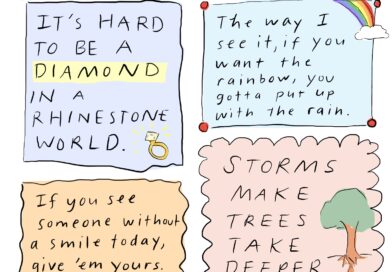 IT'S HARD
TO BE A
DIAMOND
IN A
RHINESTONE
WORLD.
The way I
see it, if you
want the
rainbow, you
gotta put up
with the rain.
If you see
someone without
a smile today,
give 'em yours.
STORMS
MAKE
TREES
TAKE
DEEPER